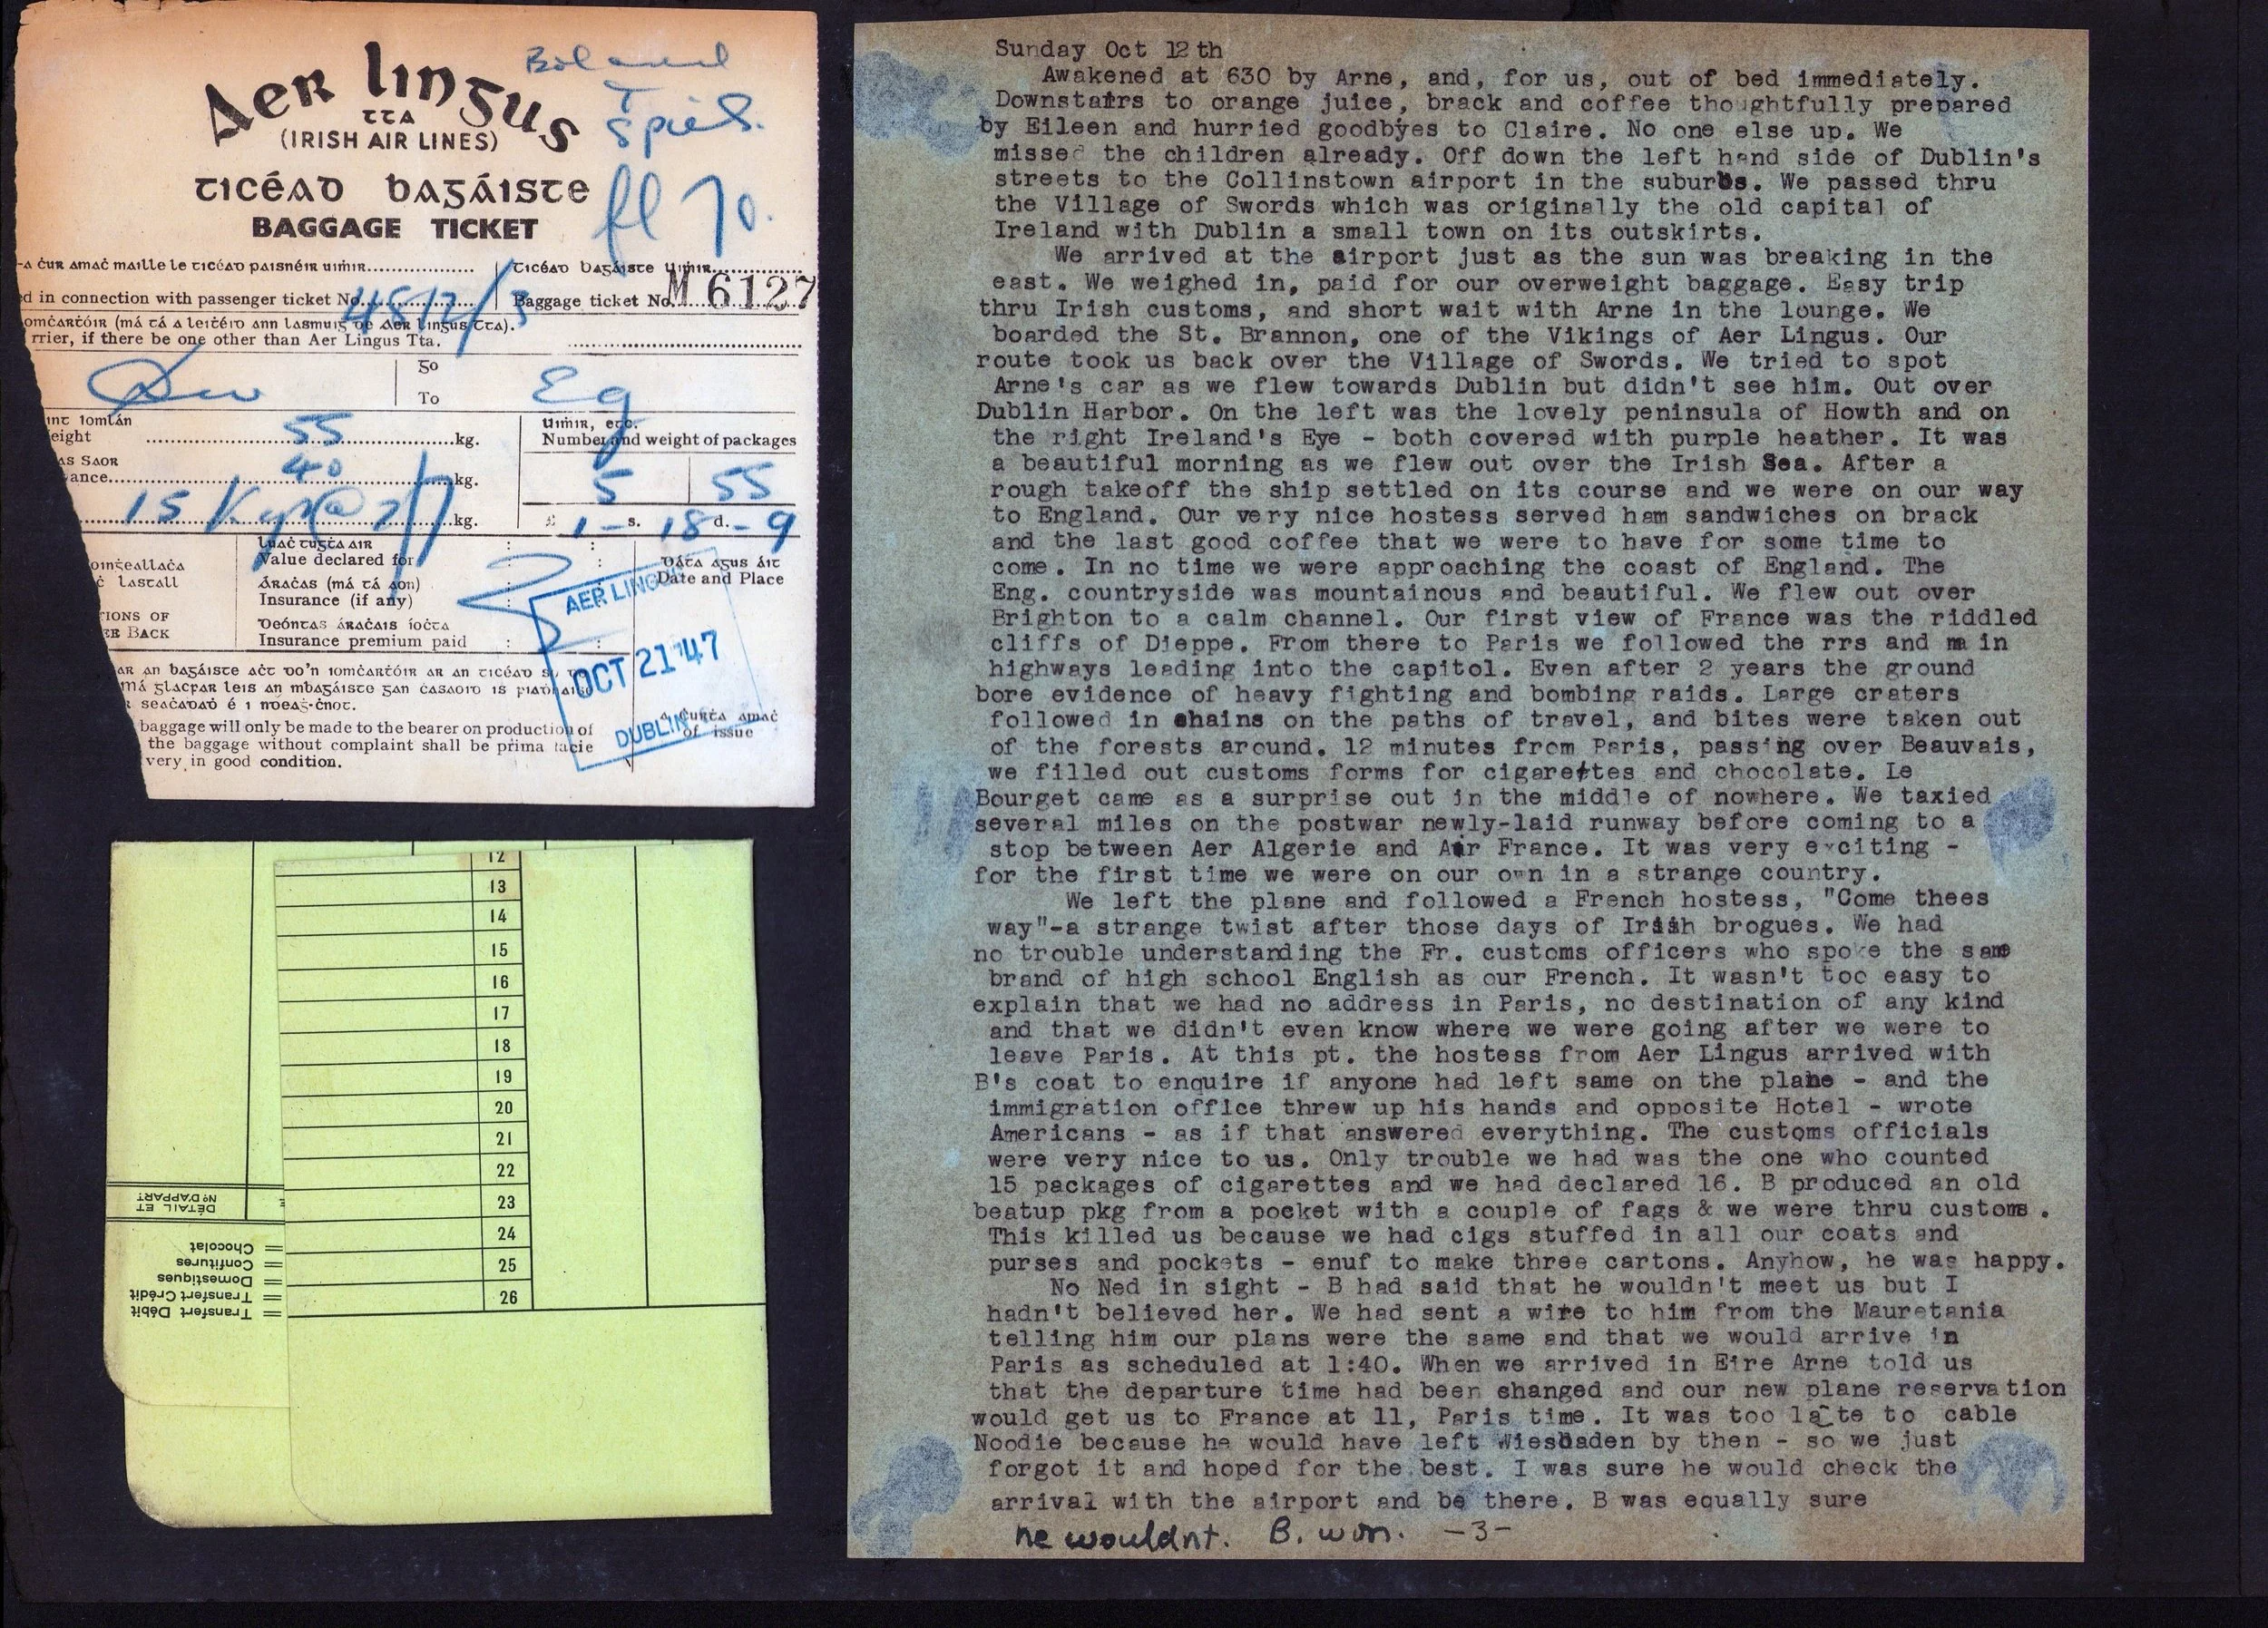 Aer Lingus
TTA
(IRISH AIR LINES)
Ticéad Bagáiste
BAGGAGE TICKET
fl 70.
-a ċur amaċ maille le ticéad paisnéir uimir
Ticéad bagáiste uimir
d in connection with passenger ticket No. 4512/3
Baggage ticket No. M 6127
omċartóir (má tá a leitéid ann lasmuig de Aer Lingus Tta).
rrier, if there be one other than Aer Lingus Tta.
go
To
55 kg.
Uimir, etc.
Number and weight of packages
40 kg.
5 55
15 Kgs @ 2/7 kg.
£ 1 - s. 18 d. - 9
Luaċ tugta air
Value declared for
Dáta agus áit
Date and Place
Áraċas (má tá aon)
Insurance (if any)
Insurance premium paid
IONS OF
EE BACK
AER LINGUS
OCT 21 '47
DUBLIN
a ċurta amaċ
of issue
baggage will only be made to the bearer on production of
the baggage without complaint shall be prima facie
very in good condition.
12
13
14
15
16
17
18
19
20
21
22
23
24
25
26
DÉTAIL ET
No D'APPART
= Chocolat
= Confitures
= Domestiques
= Transfert Crédit
= Transfert Débit
Sunday Oct 12th
Awakened at 630 by Arne, and, for us, out of bed immediately.
Downstairs to orange juice, brack and coffee thoughtfully prepared
by Eileen and hurried goodbyes to Claire. No one else up. We
missed the children already. Off down the left hand side of Dublin's
streets to the Collinstown airport in the suburbs. We passed thru
the Village of Swords which was originally the old capital of
Ireland with Dublin a small town on its outskirts.
We arrived at the airport just as the sun was breaking in the
east. We weighed in, paid for our overweight baggage. Easy trip
thru Irish customs, and short wait with Arne in the lounge. We
boarded the St. Brannon, one of the Vikings of Aer Lingus. Our
route took us back over the Village of Swords. We tried to spot
Arne's car as we flew towards Dublin but didn't see him. Out over
Dublin Harbor. On the left was the lovely peninsula of Howth and on
the right Ireland's Eye - both covered with purple heather. It was
a beautiful morning as we flew out over the Irish Sea. After a
rough takeoff the ship settled on its course and we were on our way
to England. Our very nice hostess served ham sandwiches on brack
and the last good coffee that we were to have for some time to
come. In no time we were approaching the coast of England. The
Eng. countryside was mountainous and beautiful. We flew out over
Brighton to a calm channel. Our first view of France was the riddled
cliffs of Dieppe. From there to Paris we followed the rrs and main
highways leading into the capitol. Even after 2 years the ground
bore evidence of heavy fighting and bombing raids. Large craters
followed in chains on the paths of travel, and bites were taken out
of the forests around. 12 minutes from Paris, passing over Beauvais,
we filled out customs forms for cigarettes and chocolate. Le
Bourget came as a surprise out in the middle of nowhere. We taxied
several miles on the postwar newly-laid runway before coming to a
stop between Aer Algerie and Air France. It was very exciting -
for the first time we were on our own in a strange country.
We left the plane and followed a French hostess, "Come thees
way"-a strange twist after those days of Irish brogues. We had
no trouble understanding the Fr. customs officers who spoke the same
brand of high school English as our French. It wasn't too easy to
explain that we had no address in Paris, no destination of any kind
and that we didn't even know where we were going after we were to
leave Paris. At this pt. the hostess from Aer Lingus arrived with
B's coat to enquire if anyone had left same on the plane - and the
immigration office threw up his hands and opposite Hotel - wrote
Americans - as if that answered everything. The customs officials
were very nice to us. Only trouble we had was the one who counted
15 packages of cigarettes and we had declared 16. B produced an old
beatup pkg from a pocket with a couple of fags & we were thru customs.
This killed us because we had cigs stuffed in all our coats and
purses and pockets - enuf to make three cartons. Anyhow, he was happy.
No Ned in sight - B had said that he wouldn't meet us but I
hadn't believed her. We had sent a wire to him from the Mauretania
telling him our plans were the same and that we would arrive in
Paris as scheduled at 1:40. When we arrived in Eire Arne told us
that the departure time had been changed and our new plane reservation
would get us to France at 11, Paris time. It was too late to cable
Noodie because he would have left Wiesbaden by then - so we just
forgot it and hoped for the best. I was sure he would check the
arrival with the airport and be there. B was equally sure
he wouldnt. B. won. -3-